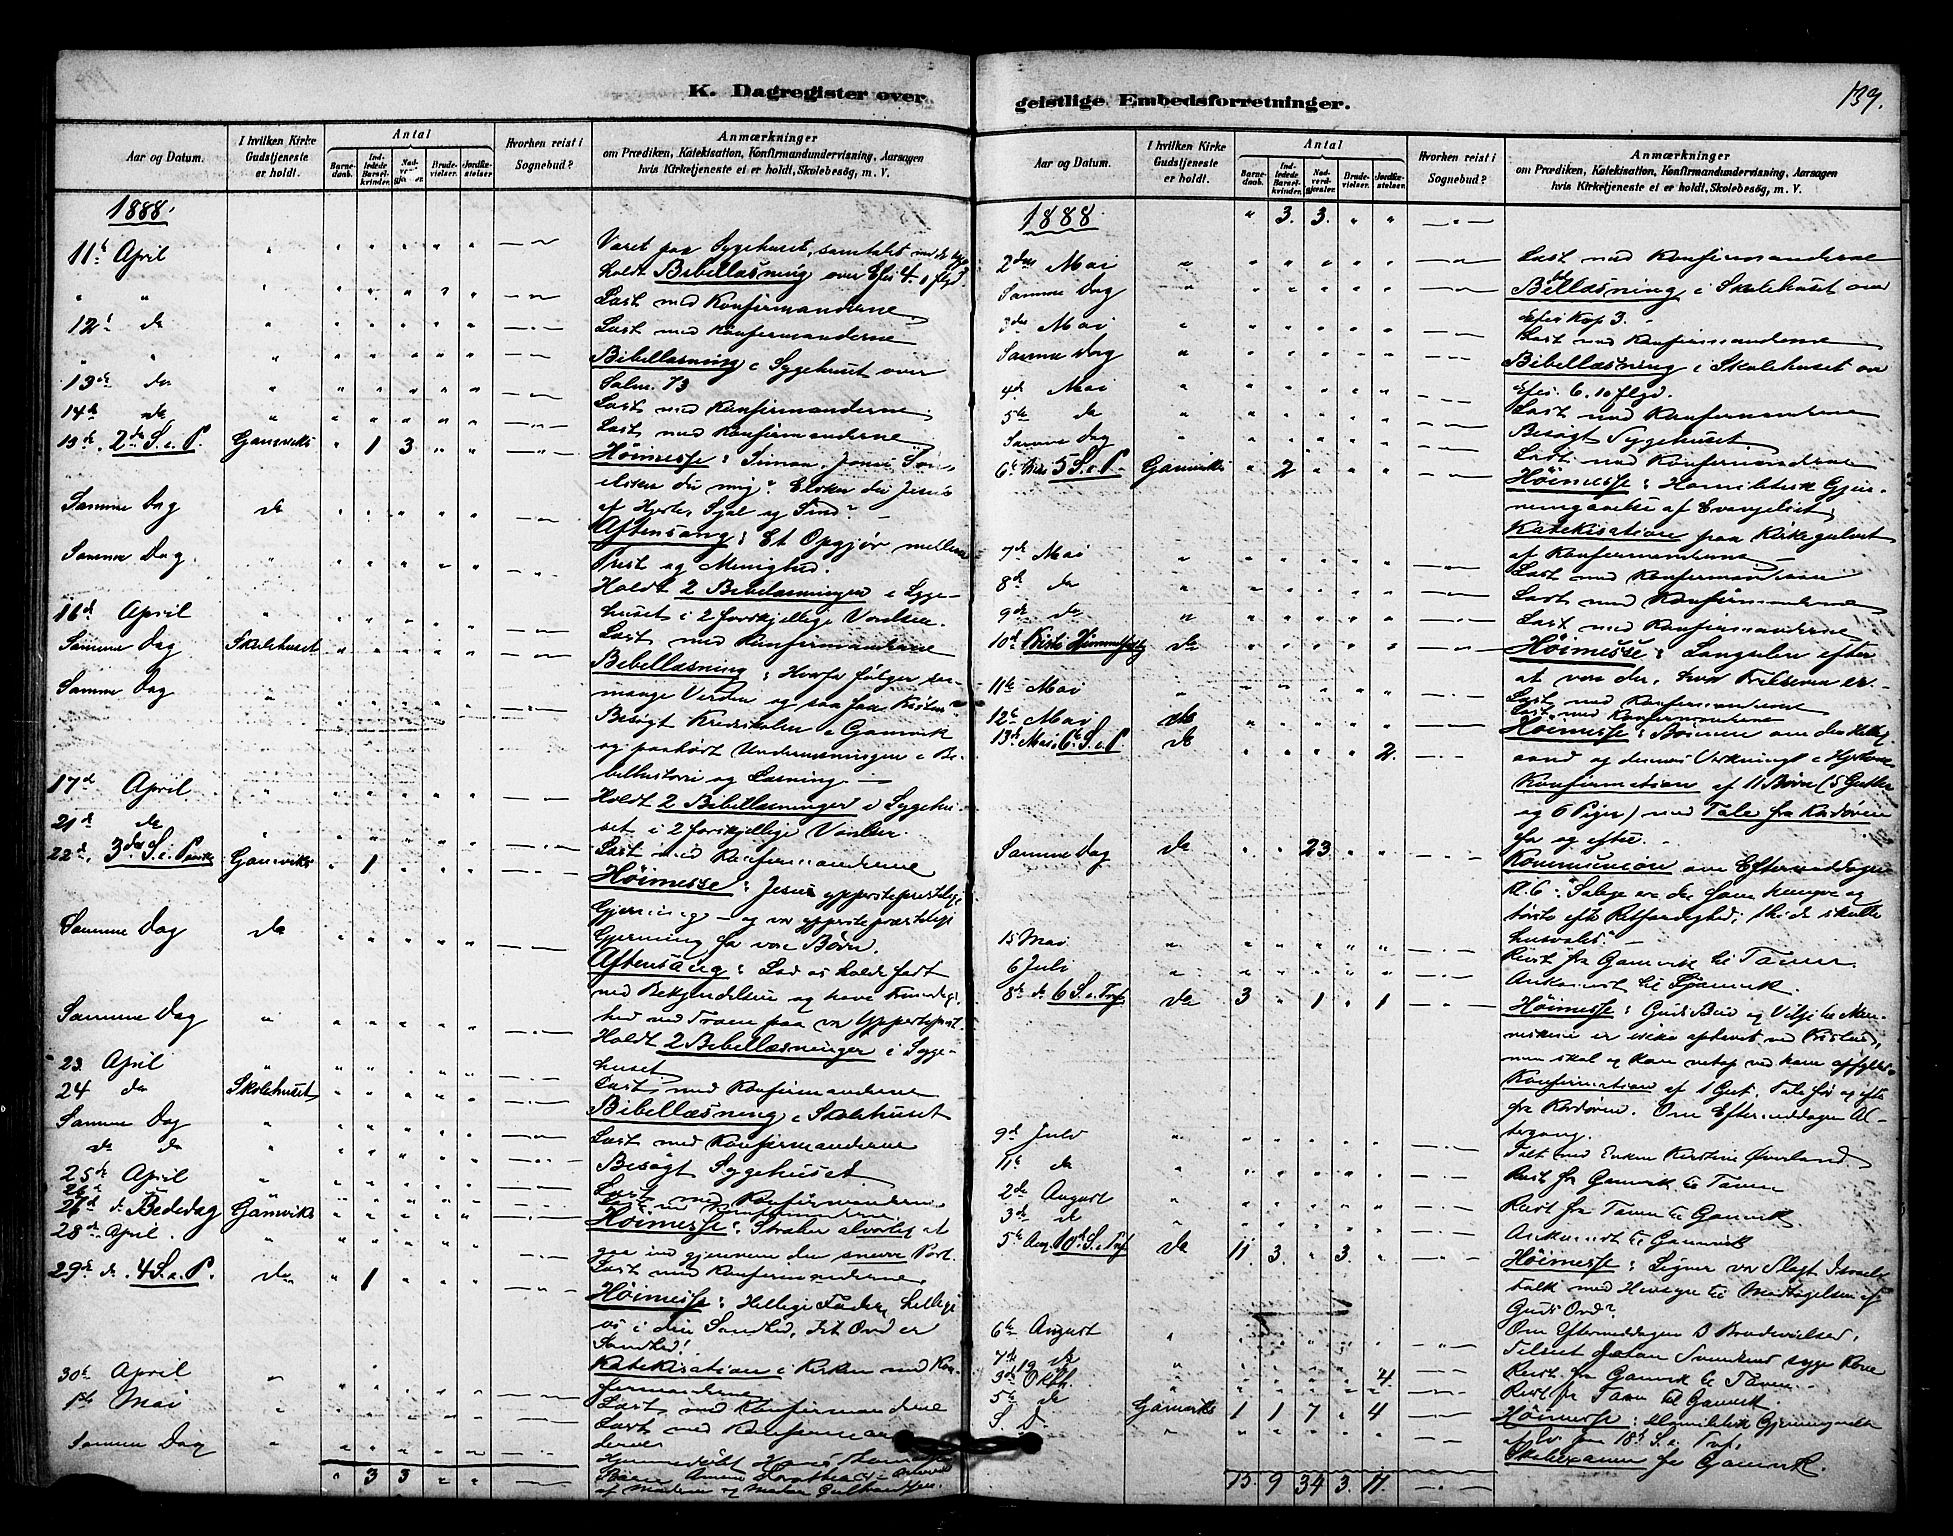 K. Dagregister over
geistlige Embedsforretninger.
139.
Aar og Datum.
I hvilken Kirke Gudstjeneste er holdt.
Antal
Barnedaab.
Indledede Barselkvinder.
Nadvergjester.
Brudevielser.
Jordfæstelser.
Hvorhen reist i Sognebud?
Anmærkninger
om Prædiken, Katekisation, Konfirmandundervisning, Aarsagen
hvis Kirketjeneste ei er holdt, Skolebesøg, m. V.
1888.
11te April Været paa Sygehuset, samtalet med de syge
Holdt Bibellæsning over Efes 4. flgd
" " Læst med Konfirmanderne.
12t do Læst med Konfirmanderne
" " Bibellæsning i Sygehuset over
Salm. 73
13de do Læst med Konfirmanderne.
14de do Læst med Konfirmanderne
15de. 2den S. e. P. Gamviks " 1 3 " " Høimesse: Simon, Jonas Søn,
elsker du mig? Elsker du Jesus
af Hjerte, Sjæl og Sind?
Samme Dag do Aftensang: Et Opgjør mellem
Prest og Menighed.
Samme Dag. Holdt 2 Bibellæsninger i Syge-
huset i 2 forskjellige Værelser.
16de April Læst med Konfirmanderne
Samme Dag Skolehuset Bibellæsning: Hvorfor følger saa
mange Verden og saa faa Kristus
Samme Dag Besøgt Kredsskolen i Gamvik
og paahørt Undervisningen i Bi-
belhistorie og Læsning —
17de April Holdt 2 Bibellæsninger i Sygehu-
set i 2 forskjellige Værelser.
21de do Læst med Konfirmanderne
22de. 3die S. e. Paaske Gamviks " 1 Høimesse: Jesu ypperstepræstelige
Gjerning — og vor ypperstepræstelige
Gjerning for vore Børn.
Samme Dag do Aftensang: Lad os holde fast
ved Bekjendelsen og have Frimodig-
hed ved Troen paa vor Ypperstepræst
Samme Dag Holdt 2 Bibellæsninger i Syge-
huset
23. April Læst med Konfirmanderne
24 do Skolehuset Bibellæsning i Skolehuset
Samme Dag Læst med Konfirmanderne
do do Besøgt Sygehuset.
25de April Læst med Konfirmanderne
26de Læst med Konfirmanderne
27de d. Bededag Gamviks Høimesse: Stræber alvorlig at
gaa ind gjennem den snevre Port.
28de April. Læst med Konfirmanderne.
29de d. 4 S. e. P. do " 1 Høimesse: Hellige Fader, hellige
os i din Sandhed, dit Ord er
Sandhed!
30te April Katekisation i Kirken med Kon-
firmanderne
1ste Mai Læst med Konfirmanderne
Læst med Konfirman-
derne
Samme Dag Hjemmedøbt
Barn
af Moderen og
" 3 3 " "
Aar og Datum.
I hvilken Kirke Gudstjeneste er holdt.
Antal
Barnedaab.
Indledede Barselkvinder.
Nadvergjester.
Brudevielser.
Jordfæstelser.
Hvorhen reist i Sognebud?
Anmærkninger
om Prædiken, Katekisation, Konfirmandundervisning, Aarsagen
hvis Kirketjeneste ei er holdt, Skolebesøg, m. V.
1888. " 3. 3. " "
2den Mai Læst med Konfirmanderne
Samme Dag Bibellæsning i Skolehuset over
Efes Kap 3.
3die Mai Læst med Konfirmanderne
Samme Dag Bibellæsning i Skolehuset over
Efes. 6, 10 flgd.
4de Mai Læst med Konfirmanderne
5te do Besøgt Sygehuset
Samme Dag Læst med Konfirmanderne
6te 5 S. e. P. Gamviks " 2 Høimesse: Homiletisk Gjen-
nemgaaelse af Evangeliet;
Katekisation paa Kirkegulvet
af Konfirmanderne
7de Mai Læst med Konfirmanderne
8de do Læst med Konfirmanderne
9de do Læst med Konfirmanderne
10de Kristi Himmelfartsdg do Høimesse: Længselen efter
at være der, hvor Frelseren er.
11te Mai Læst med Konfirmanderne
12te Mai Læst med Konfirmanderne
13de Mai, 6te S. e. P. do 2. Høimesse: Bønnen om den Hellig-
aand og dennes Virkninger i Hjerterne
Konfirmation af 11 Børn (5 Gutter
og 6 Piger) med Tale fra Kordøren
før og efter.
Samme Dag do 23 Kommunion om Eftermiddagen
Kl. 6: "Salige ere de som hungre og
tørste efter Retfærdighed; thi de skulle
husvales". —
15 Mai Reist fra Gamvik til Tanen.
6 Juli Ankommet til Gamvik.
8de d. 6 S. e. Tref do 3 " 1 " 1 Høimesse: Guds Bud og Vilje til Men-
neskene er ikke ophævet ved Kristus,
men skal og kan netop ved ham opfyldes.
Konfirmation af 1 Gut. Tale før og efter
fra Kordøren. Om Eftermiddagen Al-
tergang.
9de Juli Talt med Enken Kirstine Øverland.
11te do Reist fra Gamvik til Tanen
2den August Reist fra Tanen til Gamvik.
3die do Ankommet til Gamvik
5te Aug. 10de S. e. Tref do 11 3 " 3 " Høimesse: Ligner vor Slægt Israels
Folk med Hensyn til Modtagelsen af
Guds Ord?
6te August Om Eftermiddagen 3 Brudevielser.
7de do Tilseet Johan Svendsens syge Kone
19 do Reist fra Gamvik til Tanen.
3die Oktb. 4. Reist fra Tanen til Gamvik.
5te do Gamviks 1 1 7 " 4 Høimesse: Homiletisk Gjennemgaaelse
af Ev. paa 18de S. e. Tref.
S D. Skoleexamen for Gamvik.
15. 9 34 3. 11.